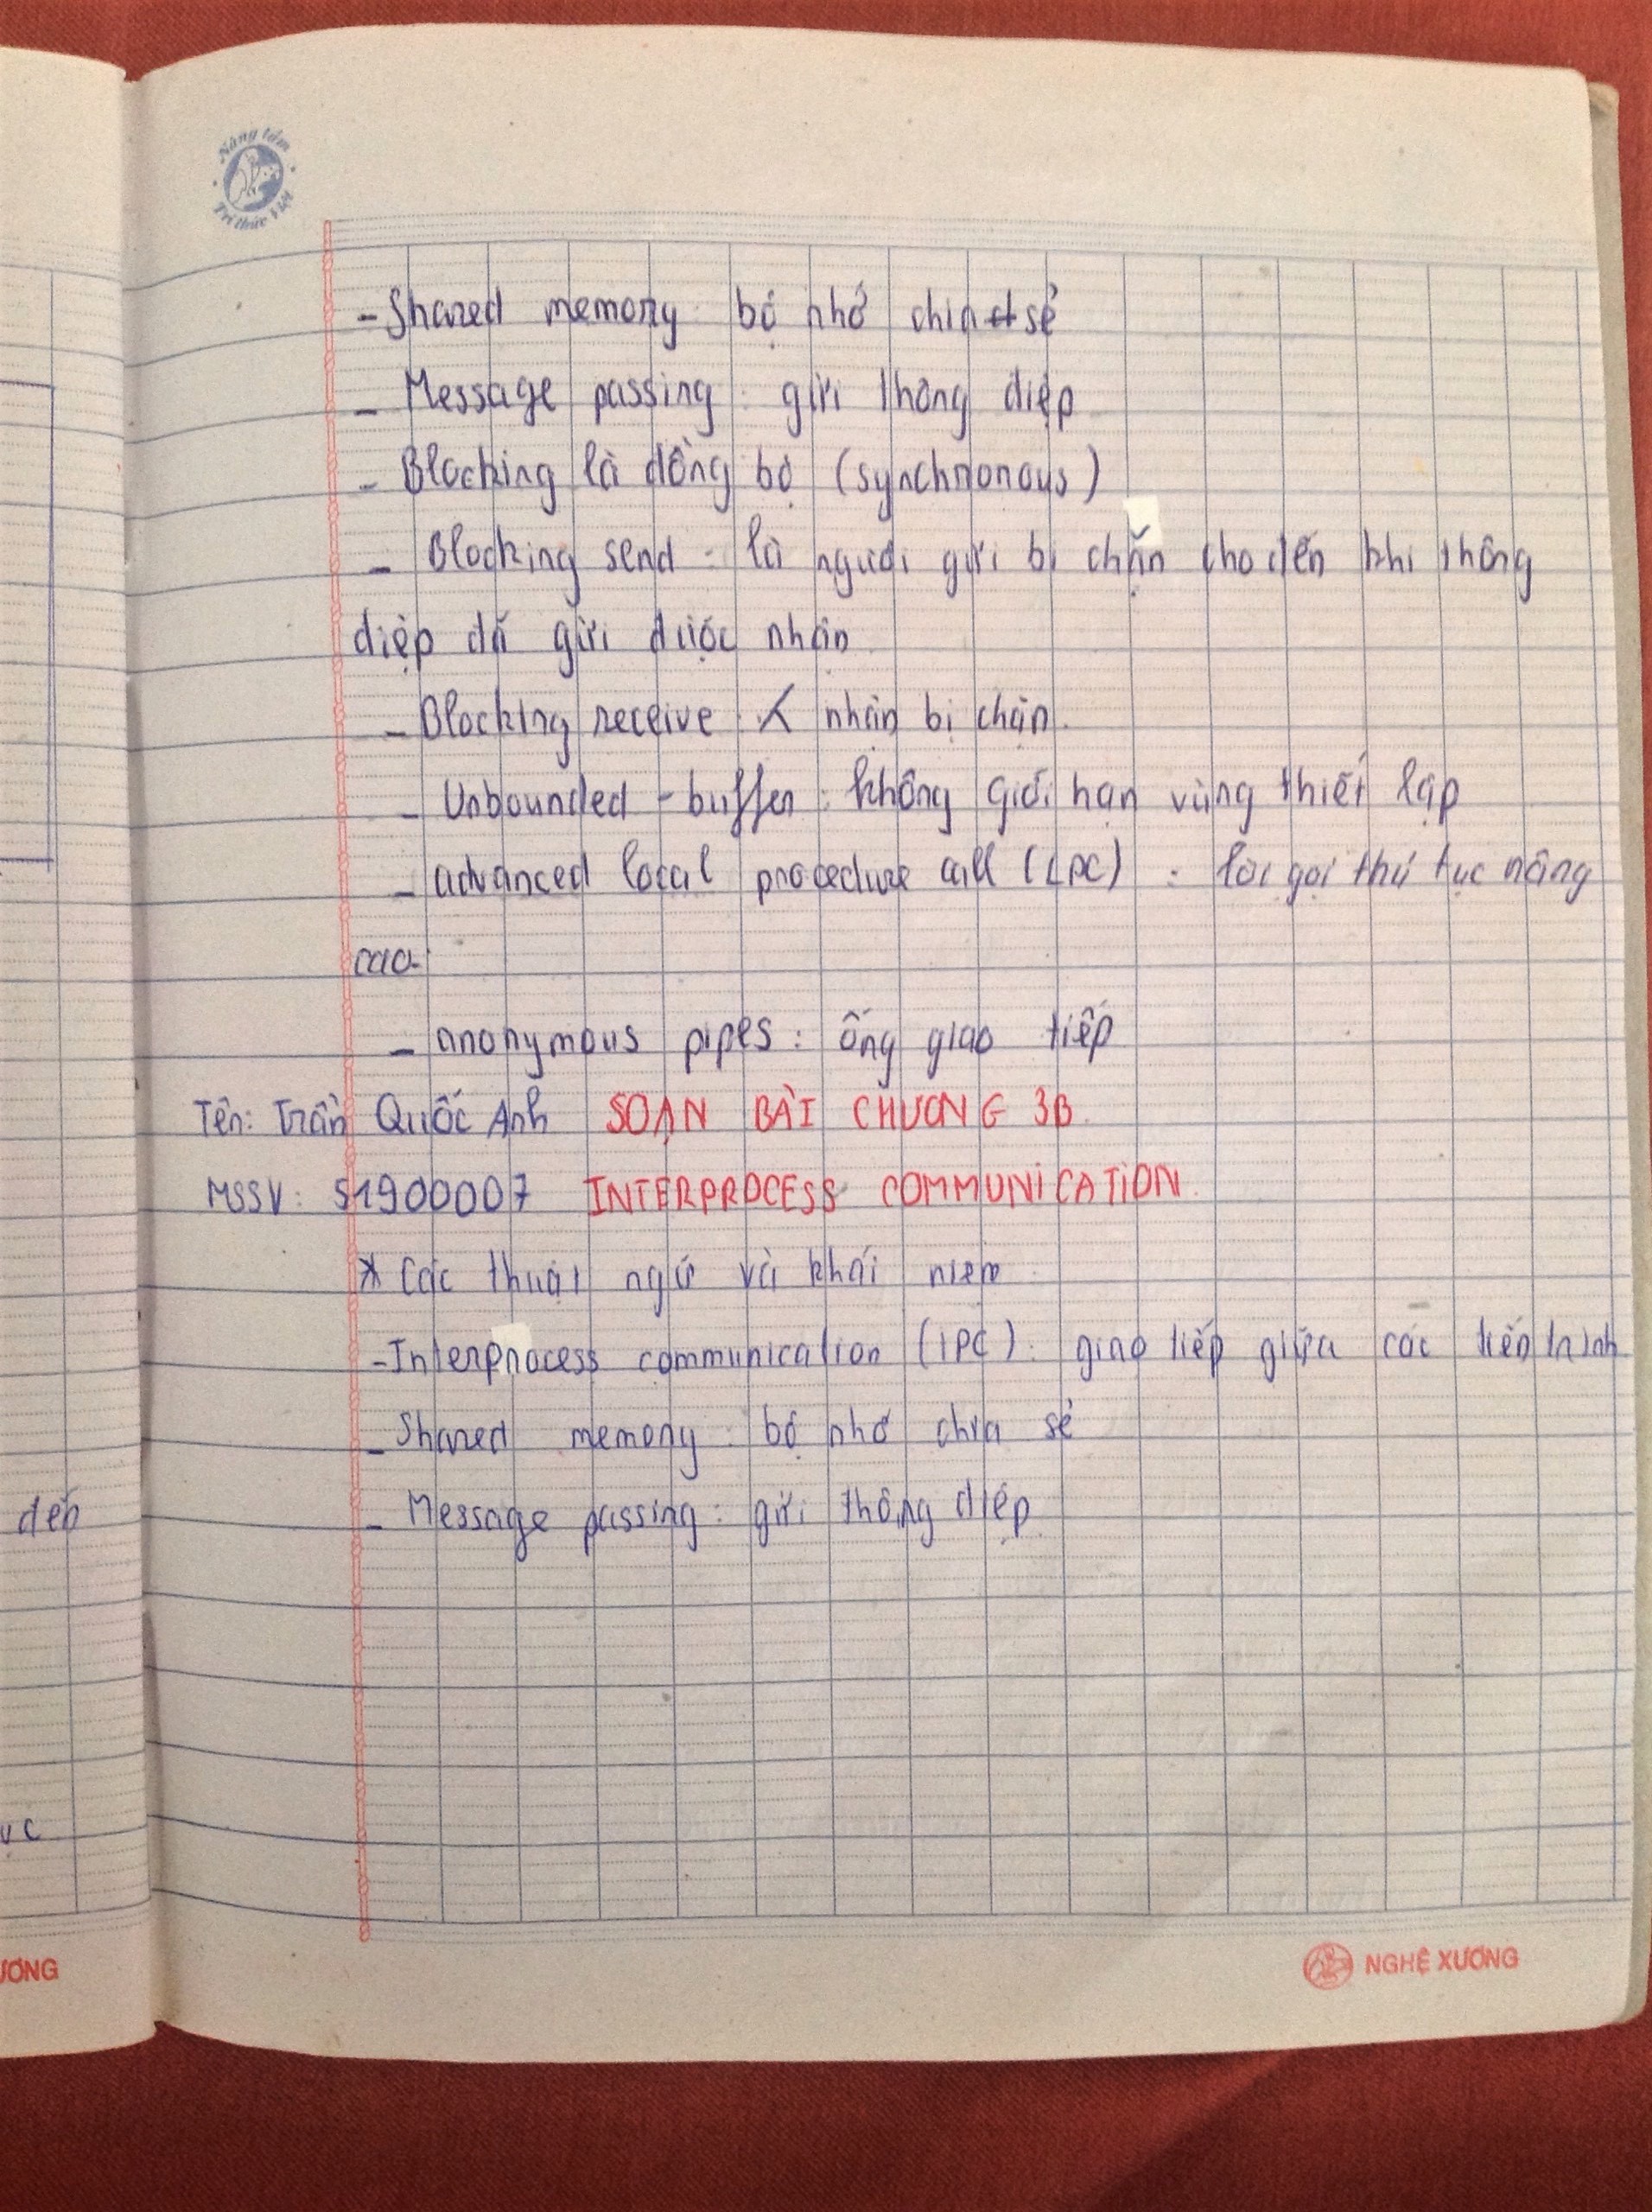 Nâng tầm
Trí thức Việt
- Shared memory bộ nhớ chia sẻ
- Message passing : gửi thông điệp
- Blocking là đồng bộ (synchronous)
- Blocking send : là người gửi bị chặn cho đến khi thông
điệp đã gửi được nhận
- Blocking receive : nhận bị chặn.
- Unbounded - buffer : không giới hạn vùng thiết lập
- advanced local procedure call (LPC) : lời gọi thủ tục nâng
cao.
- anonymous pipes : ống giao tiếp
Tên: Trần Quốc Anh SOẠN BÀI CHƯƠNG 3B.
MSSV: 51900007 INTERPROCESS COMMUNICATION.
* Các thuật ngữ và khái niệm
- Interprocess communication (IPC) : giao tiếp giữa các tiến trình
- Shared memory : bộ nhớ chia sẻ
- Message passing : gửi thông điệp
đến
ục
ƯƠNG
NGHỆ XƯƠNG